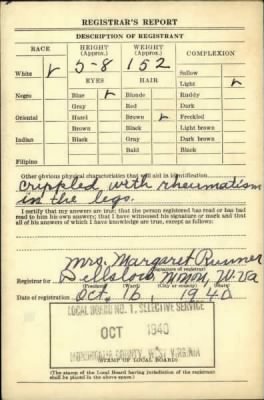 REGISTRAR'S REPORT
DESCRIPTION OF REGISTRANT
RACE HEIGHT (Approx.) WEIGHT (Approx.) COMPLEXION
White ✓ 5-8 152 Sallow
EYES HAIR Light ✓
Negro Blue ✓ Blonde Ruddy
Gray Red Dark
Oriental Hazel Brown ✓ Freckled
Brown Black Light brown
Indian Black Gray Dark brown
Bald Black
Filipino
Other obvious physical characteristics that will aid in identification
crippled with rheumatism
in the legs.
I certify that my answers are true; that the person registered has read or has had
read to him his own answers; that I have witnessed his signature or mark and that
all of his answers of which I have knowledge are true, except as follows:
Mrs. Margaret Runner
(Signature of registrar)
Registrar for Dellslow, Monon, W. Va
(Precinct) (Ward) (City or county) (State)
Date of registration Oct. 16, 1940
LOCAL BOARD NO. 1, SELECTIVE SERVICE
OCT 1940
MONONGALIA COUNTY, WEST VIRGINIA
(STAMP OF LOCAL BOARD)
(The stamp of the Local Board having jurisdiction of the registrant
shall be placed in the above space.)